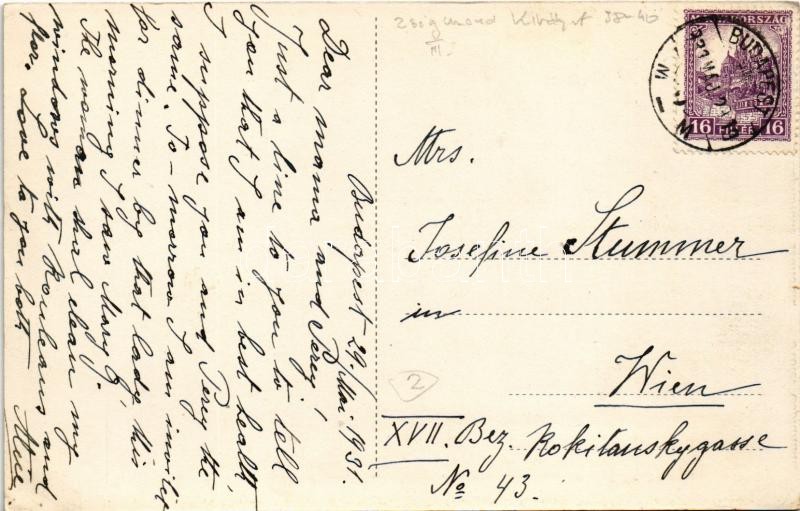 Budapest 29. Mai 1931.
Dear mama and Percy,
Just a line to you to tell
you that I am in best health
I suppose you and Percy the
same. To-morrow I am invited
for dinner by that lady this
morning I saw Mary G.
The woman that clean my
windows with Rouleaus and
flor. Love to you both
zsigmond Király 38-40
III.
MAGYARORSZÁG
16 16
FILLÉR
BUDAPEST
931 MÁJ 29
Mrs.
Josefine Stummer
in
Wien
XVII. Bez. Rokitanskygasse
No 43.
2